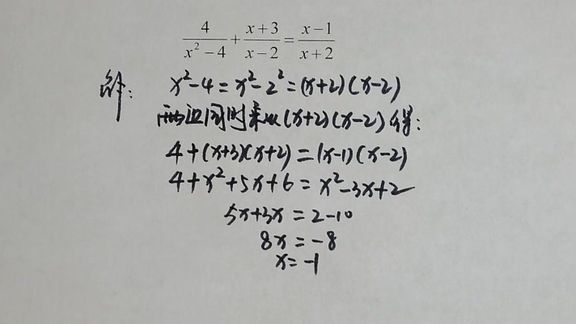 4/(x²-4) + (x+3)/(x-2) = (x-1)/(x+2)
解: x²-4=x²-2²=(x+2)(x-2)
两边同时乘以(x+2)(x-2)得:
4+(x+3)(x+2)=(x-1)(x-2)
4+x²+5x+6=x²-3x+2
5x+3x=2-10
8x=-8
x=-1